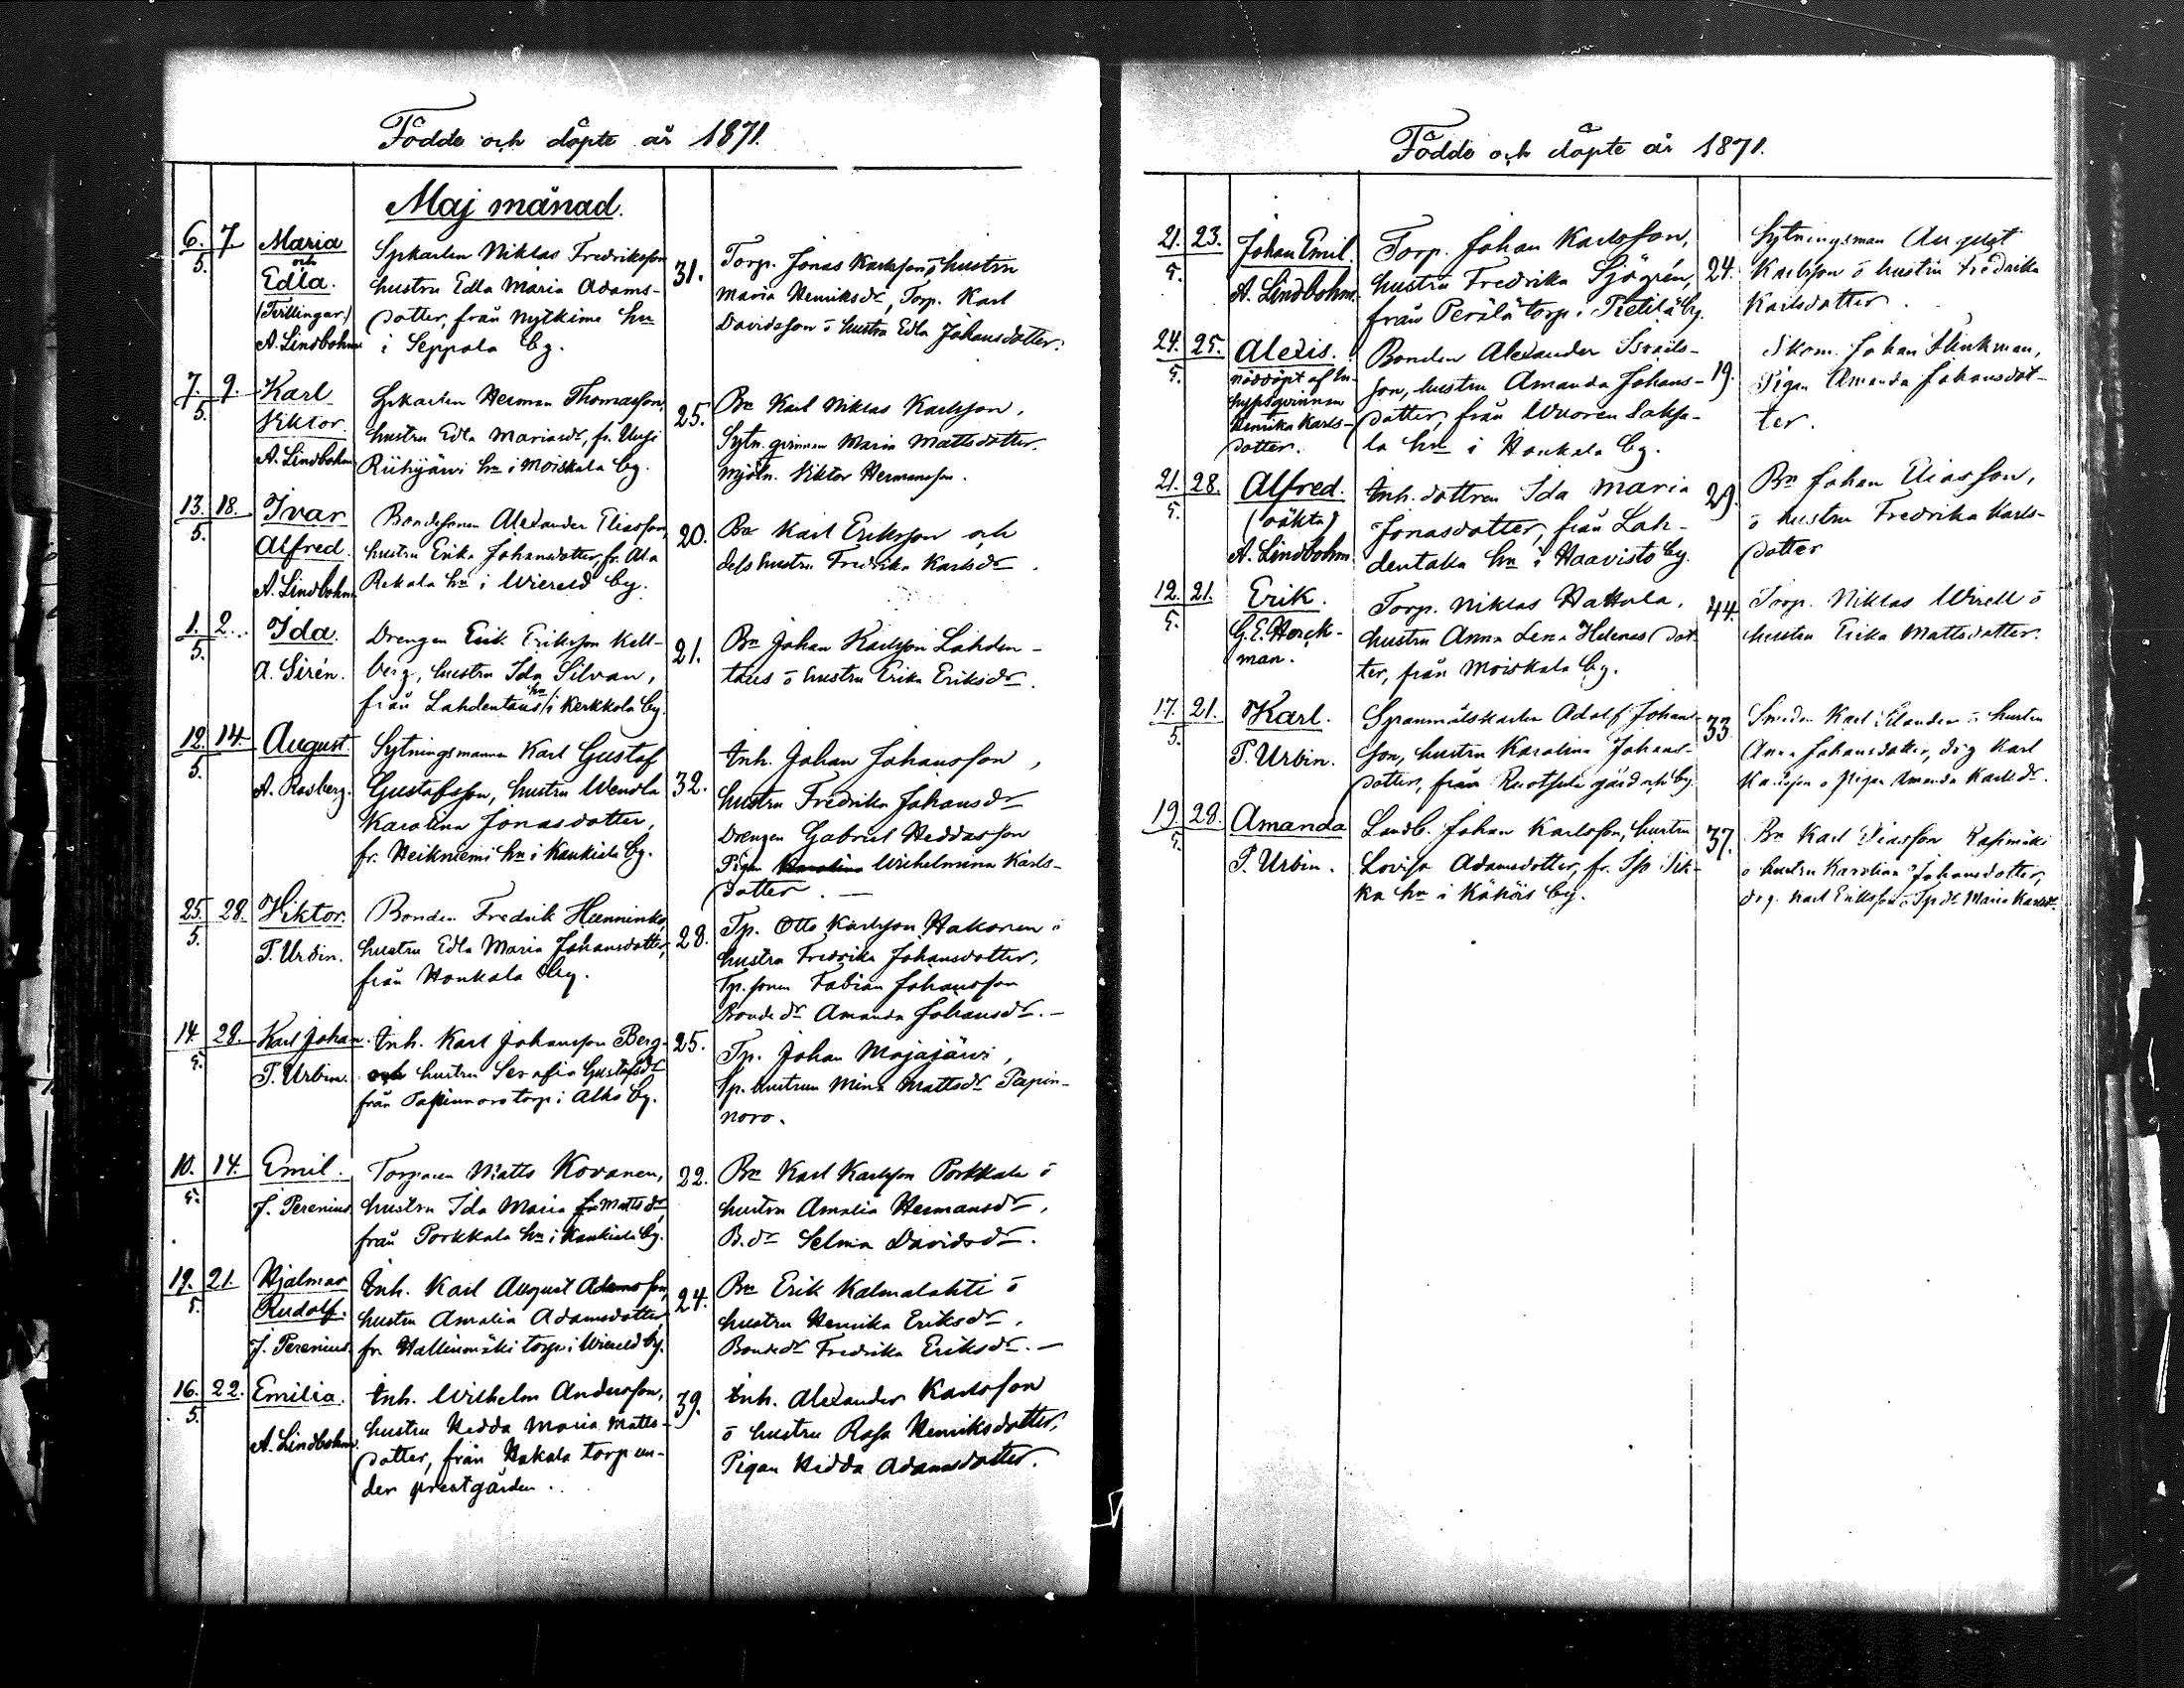 Födde och döpte år 1871.
Maj månad.
6. 7. Maria
5. och
Edla.
(Tvillingar)
A. Lindbohm
Spkarlen Niklas Fredriksson
hustru Edla Maria Adams-
dotter, från Nytkime hn
i Seppala by.
31.
Torp. Jonas Karlsson ō hustru
Maria Henriksdr, Torp. Karl
Davidsson ō hustru Edla Johansdotter.
7. 9. Karl
5. Viktor.
A. Lindbohm
Spkarlen Herman Thomasson,
hustru Edla Mariasdr, fr. Uusi
Riihijärvi hn i Moiskala by.
25.
Bn Karl Niklas Karlsson,
Sytn. qvinnan Maria Mattsdotter.
Mjöln. Viktor Hermansson.
13. 18. Ivar
5. Alfred.
A. Lindbohm
Bondesonen Alexander Eliasson,
hustru Erika Johansdotter, fr. Ala
Rekola hn i Wiereld by.
20.
Bn Karl Eriksson och
dess hustru Fredrika Karlsdr.
1. 2. Ida.
5. A. Sirén.
Drengen Erik Eriksson Kell-
berg, hustru Ida Silvan,
från Lahdentaus hn i Kerkkola by.
21.
Bn Johan Karlsson Lahden-
taus ō hustru Erika Eriksdr.
12. 14. August.
5. A. Rosberg.
Sytningsmannen Karl Gustaf
Gustafsson, hustru Wendla
Karolina Jonasdotter,
fr. Heikniemi hn i Kankiala by.
32.
Inh. Johan Johansson,
hustru Fredrika Johansdr
Drengen Gabriel Heddasson
Pigan Karolina Wilhelmina Karls-
dotter. —
25. 28. Viktor.
5. T. Urbin.
Bonden Fredrik Hunninko,
hustru Edla Maria Johansdotter,
från Honkala by.
28.
Tp. Otto Karlsson Hakonen ō
hustru Fredrika Johansdotter,
Tp. sonen Fabian Johansson
Bondedr Amanda Johansdr. —
14. 28. Karl Johan.
5. T. Urbin.
Inh. Karl Johansson Berg
och hustru Serafia Gustafsdr
från Papinnoro torp i Alho by.
25.
Tp. Johan Majajärvi,
Tp. hustrun Mina Mattsdr Papin-
noro.
10. 14. Emil.
5. J. Perenius
Torparen Matts Kovanen,
hustru Ida Maria Mattsdr,
från Porkkala hn i Kankiala by.
22.
Bn Karl Karlsson Porkkala ō
hustru Amalia Hermansdr,
B.dr Selma Davidsdr.
19. 21. Hjalmar
5. Rudolf.
J. Perenius
Inh. Karl August Adamsson,
hustru Amalia Adamsdotter,
fr. Hallinmäki torp i Wiereld by.
24.
Bn Erik Kalmalahti ō
hustru Henrika Eriksdr.
Bondedr Fredrika Eriksdr. —
16. 22. Emilia.
5. A. Lindbohm.
Inh. Wilhelm Andersson,
hustru Hedda Maria Matts-
dotter, från Hakala torp un-
der prestgården.
39.
Inh. Alexander Karlsson
ō hustru Rosa Henriksdotter,
Pigan Hedda Adamsdotter.
Födde och döpte år 1871.
21. 23. Johan Emil.
5. A. Lindbohm.
Torp. Johan Karlsson,
hustru Fredrika Sjögrén,
från Perälä torp i Pietilä by.
24.
Sytningsman August
Karlsson ō hustru Fredrika
Karlsdotter.
24. 25. Alexis.
5. nöddöpt af In-
hysesqvinnan
Henrika Karls-
dotter.
Bonden Alexander Israels-
son, hustru Amanda Johans-
dotter, från Wuoren Saksa-
la hn i Honkala by.
19.
Skom. Johan Flinkman,
Pigan Amanda Johansdot-
ter.
21. 28. Alfred.
5. (oäkta)
A. Lindbohm.
Inh. dottren Ida Maria
Jonasdotter, från Lah-
dentaka hn i Haavisto by.
29.
Bn Johan Eliasson,
ō hustru Fredrika Karls-
dotter
12. 21. Erik.
5. G. E. Horck-
man.
Torp. Niklas Hattula,
hustru Anna Lena Helenasdot-
ter, från Moiskala by.
44.
Torp. Niklas Wirell ō
hustru Erika Mattsdotter.
17. 21. Karl.
5. T. Urbin.
Spanmålskarlen Adolf Johans-
son, hustru Karolina Johans-
dotter, från Ruotsula gård och by.
33.
Smeden Karl Elander ō hustru
Anna Johansdotter, drg Karl
Karlsson ō pigan Amanda Karlsdr.
19. 28. Amanda
5. T. Urbin.
Landb. Johan Karlsson, hustru
Lovisa Adamsdotter, fr. Iso Sik-
ka hn i Kähöis by.
37.
Bn Karl Eliasson Kasimäki
ō hustru Karolina Johansdotter,
drg. Karl Eriksson ō Tp dr Maria Karlsdr.